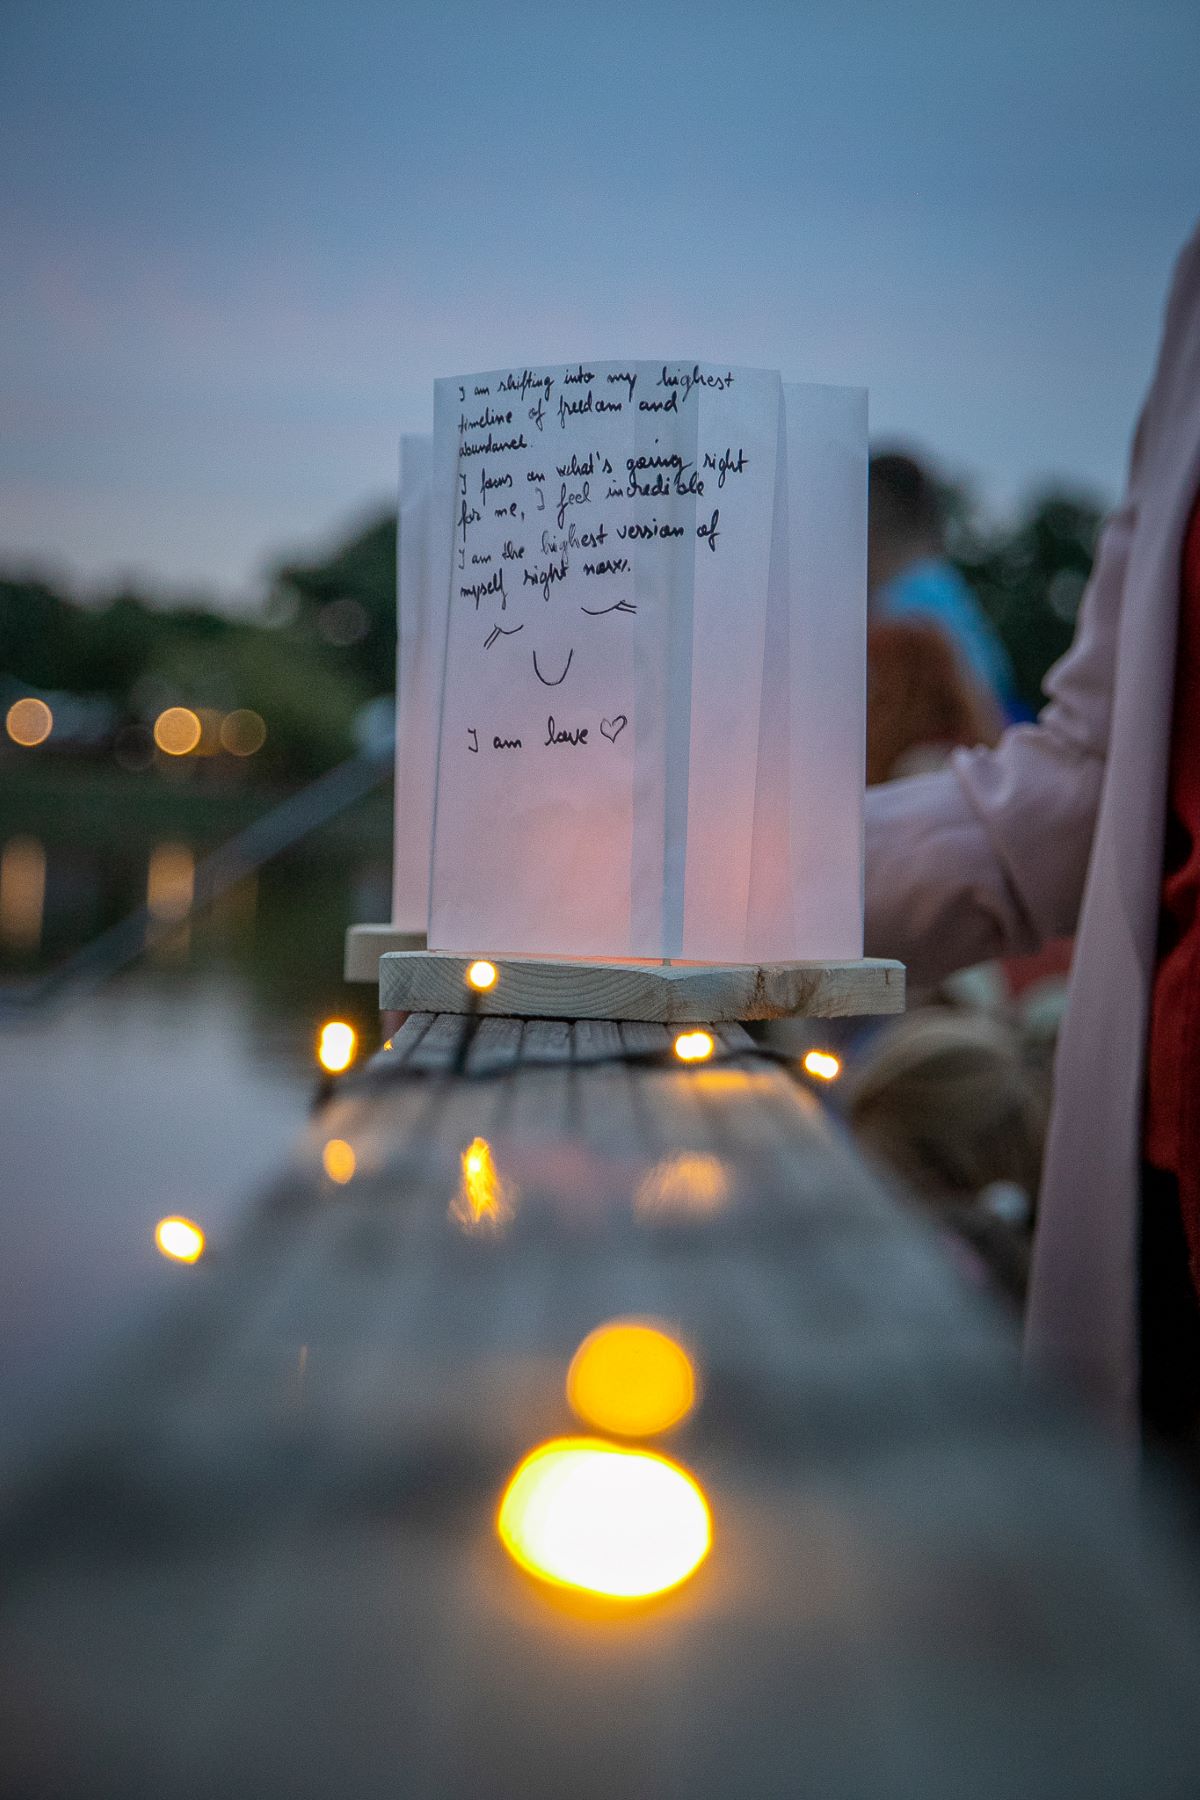 I am shifting into my highest
timeline of freedom and
abundance.
I focus on what's going right
for me, I feel incredible
I am the highest version of
myself right now.
I am love ♡